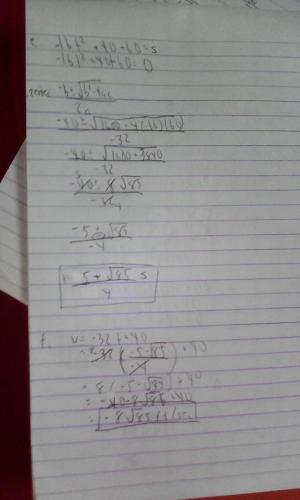 e. -16t² + 40 + 60 = s
-16t² + 40t + 60 = 0
-b ± √b² - 4ac
2a
-40 ± √1600 - 4(-16)(60)
-32
-40 ± √1600 + 3840
-32
-40 ± 8√85
-32
-5 ± √85
-4
5 + √85 s
4
f. v = -32t + 40
= -32 (-5 - √85) + 40
-4
= 8(-5 - √85) + 40
= -40 - 8√85 + 40
= -8√85 ft/sec